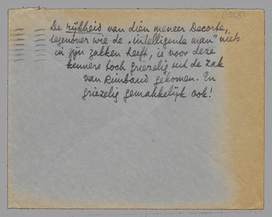 De rijkheid van dien meneer Decorte,
tegenover wie de "intelligente man" niets
in zijn zakken heeft, is voor deze
kenners toch griezelig uit de zak
van Rimbaud gekomen. En
griezelig gemakkelijk ook!